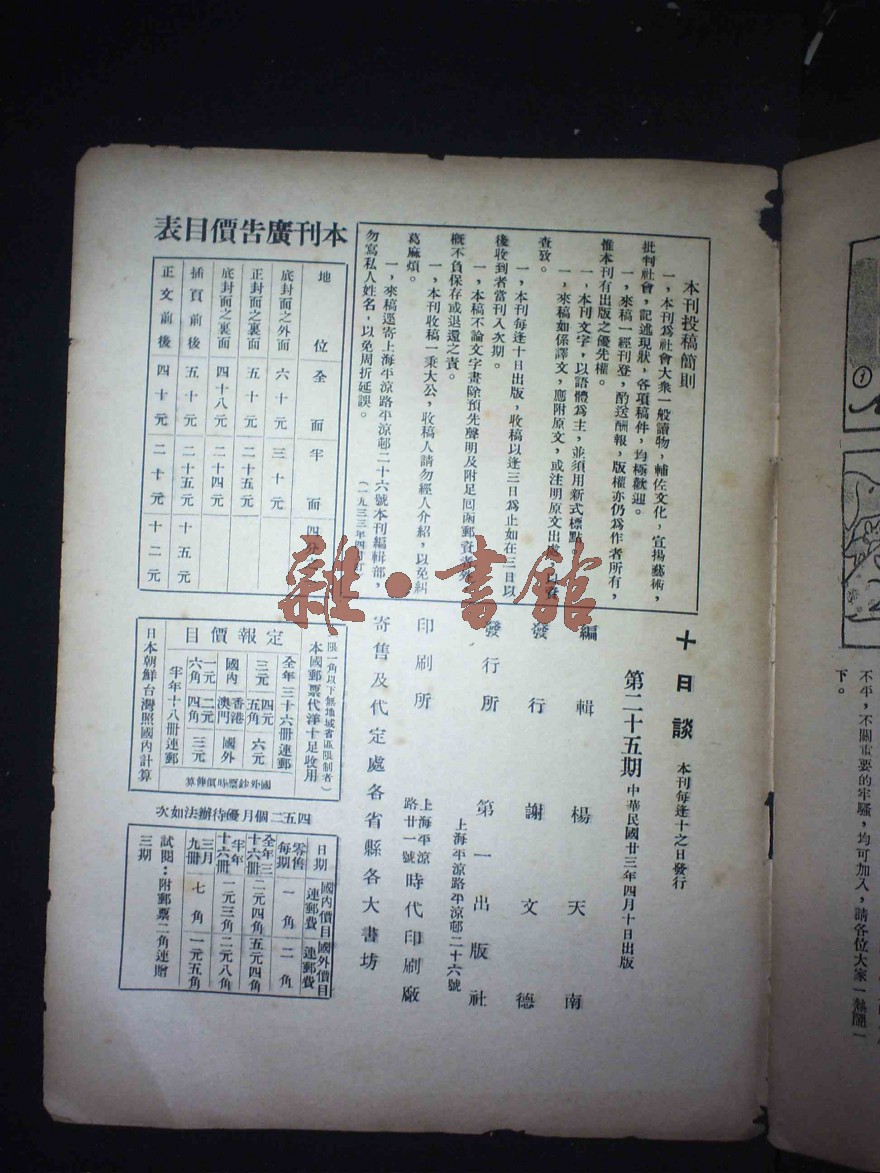 本刊投稿簡則
一，本刊爲社會大衆一般讀物，輔佐文化，宣揚藝術，
批判社會，記述現狀，各項稿件，均極歡迎。
一，來稿一經刊登，酌送酬報，版權亦仍爲作者所有，
惟本刊有出版之優先權。
一，本刊文字，以語體爲主，並須用新式標點。
一，來稿如係譯文，應附原文，或注明原文出處，以
查攷。
一，本刊每逢十日出版，收稿以逢三日爲止如在三日以
後收到者當刊入次期。
一，本稿不論文字畫除預先聲明及附足囘函郵資者外
概不負保存或退還之責。
一，本刊收稿一秉大公，收稿人請勿經人介紹，以免糾
葛麻煩。
一，來稿逕寄上海平涼路平涼邨二十六號本刊編輯部，
勿寫私人姓名，以免周折延誤。
（一九三三年四
本刊廣告價目表
地位 全面 半面 四分
底封面之外面 六十元 三十元
正封面之裏面 五十元 二十五元
底封面之裏面 四十八元 二十四元
插頁前後 五十元 二十五元 十五元
正文前後 四十元 二十元 十二元
十日談 本刊每逢十之日發行
第二十五期 中華民國廿三年四月十日出版
編輯 楊天南
發行 謝文德
發行所 第一出版社
上海平涼路平涼邨二十六號
印刷所 時代印刷廠
上海平涼
路廿一號
寄售及代定處各省縣各大書坊
定報價目
本國郵票代洋十足收用
限一角以下無地域省區限制者）
全年三十六册連郵
三元 四元五角 六元
國內 香港澳門 國外
一元六角 二元四角 三元
半年十八册連郵
日本朝鮮台灣照國內計算
國外鈔票時價伸算
四五二個月優待辦法如次
日期 國內價目連郵費 國外價目連郵費
零售每期 一角 二角
全年三十六册 二元四角 五元四角
半年十六册 一元三角 二元八角
三月九册 七角 一元五角
試閱：附郵票二角連贈
三期
雜·書館
1
不平，不關重要的牢騷，均可加入，請各位大家一熱鬧一
下。